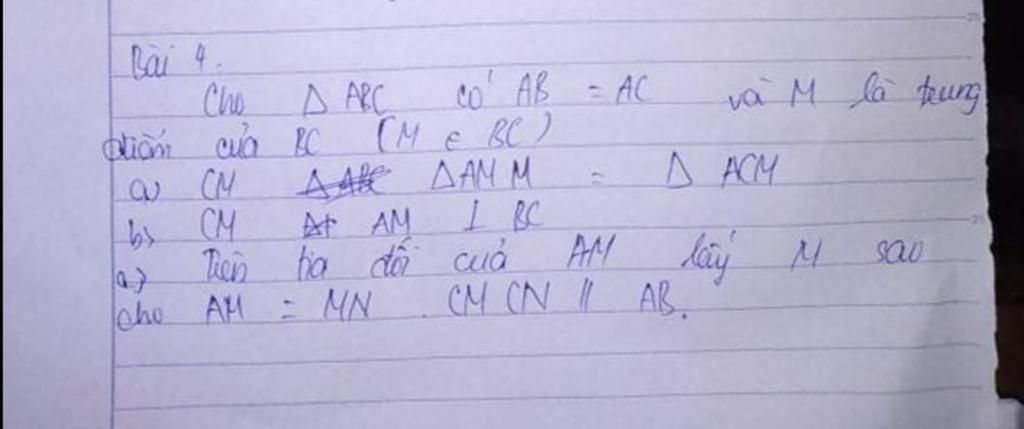 Bài 4.
Cho Δ ABC có AB = AC và M là trung
điểm của BC (M ∈ BC)
a) CM ΔAMM = Δ ACM
b) CM AM ⊥ BC
a) Trên tia đối của AM lấy M sao
cho AM = MN . CM CN // AB.